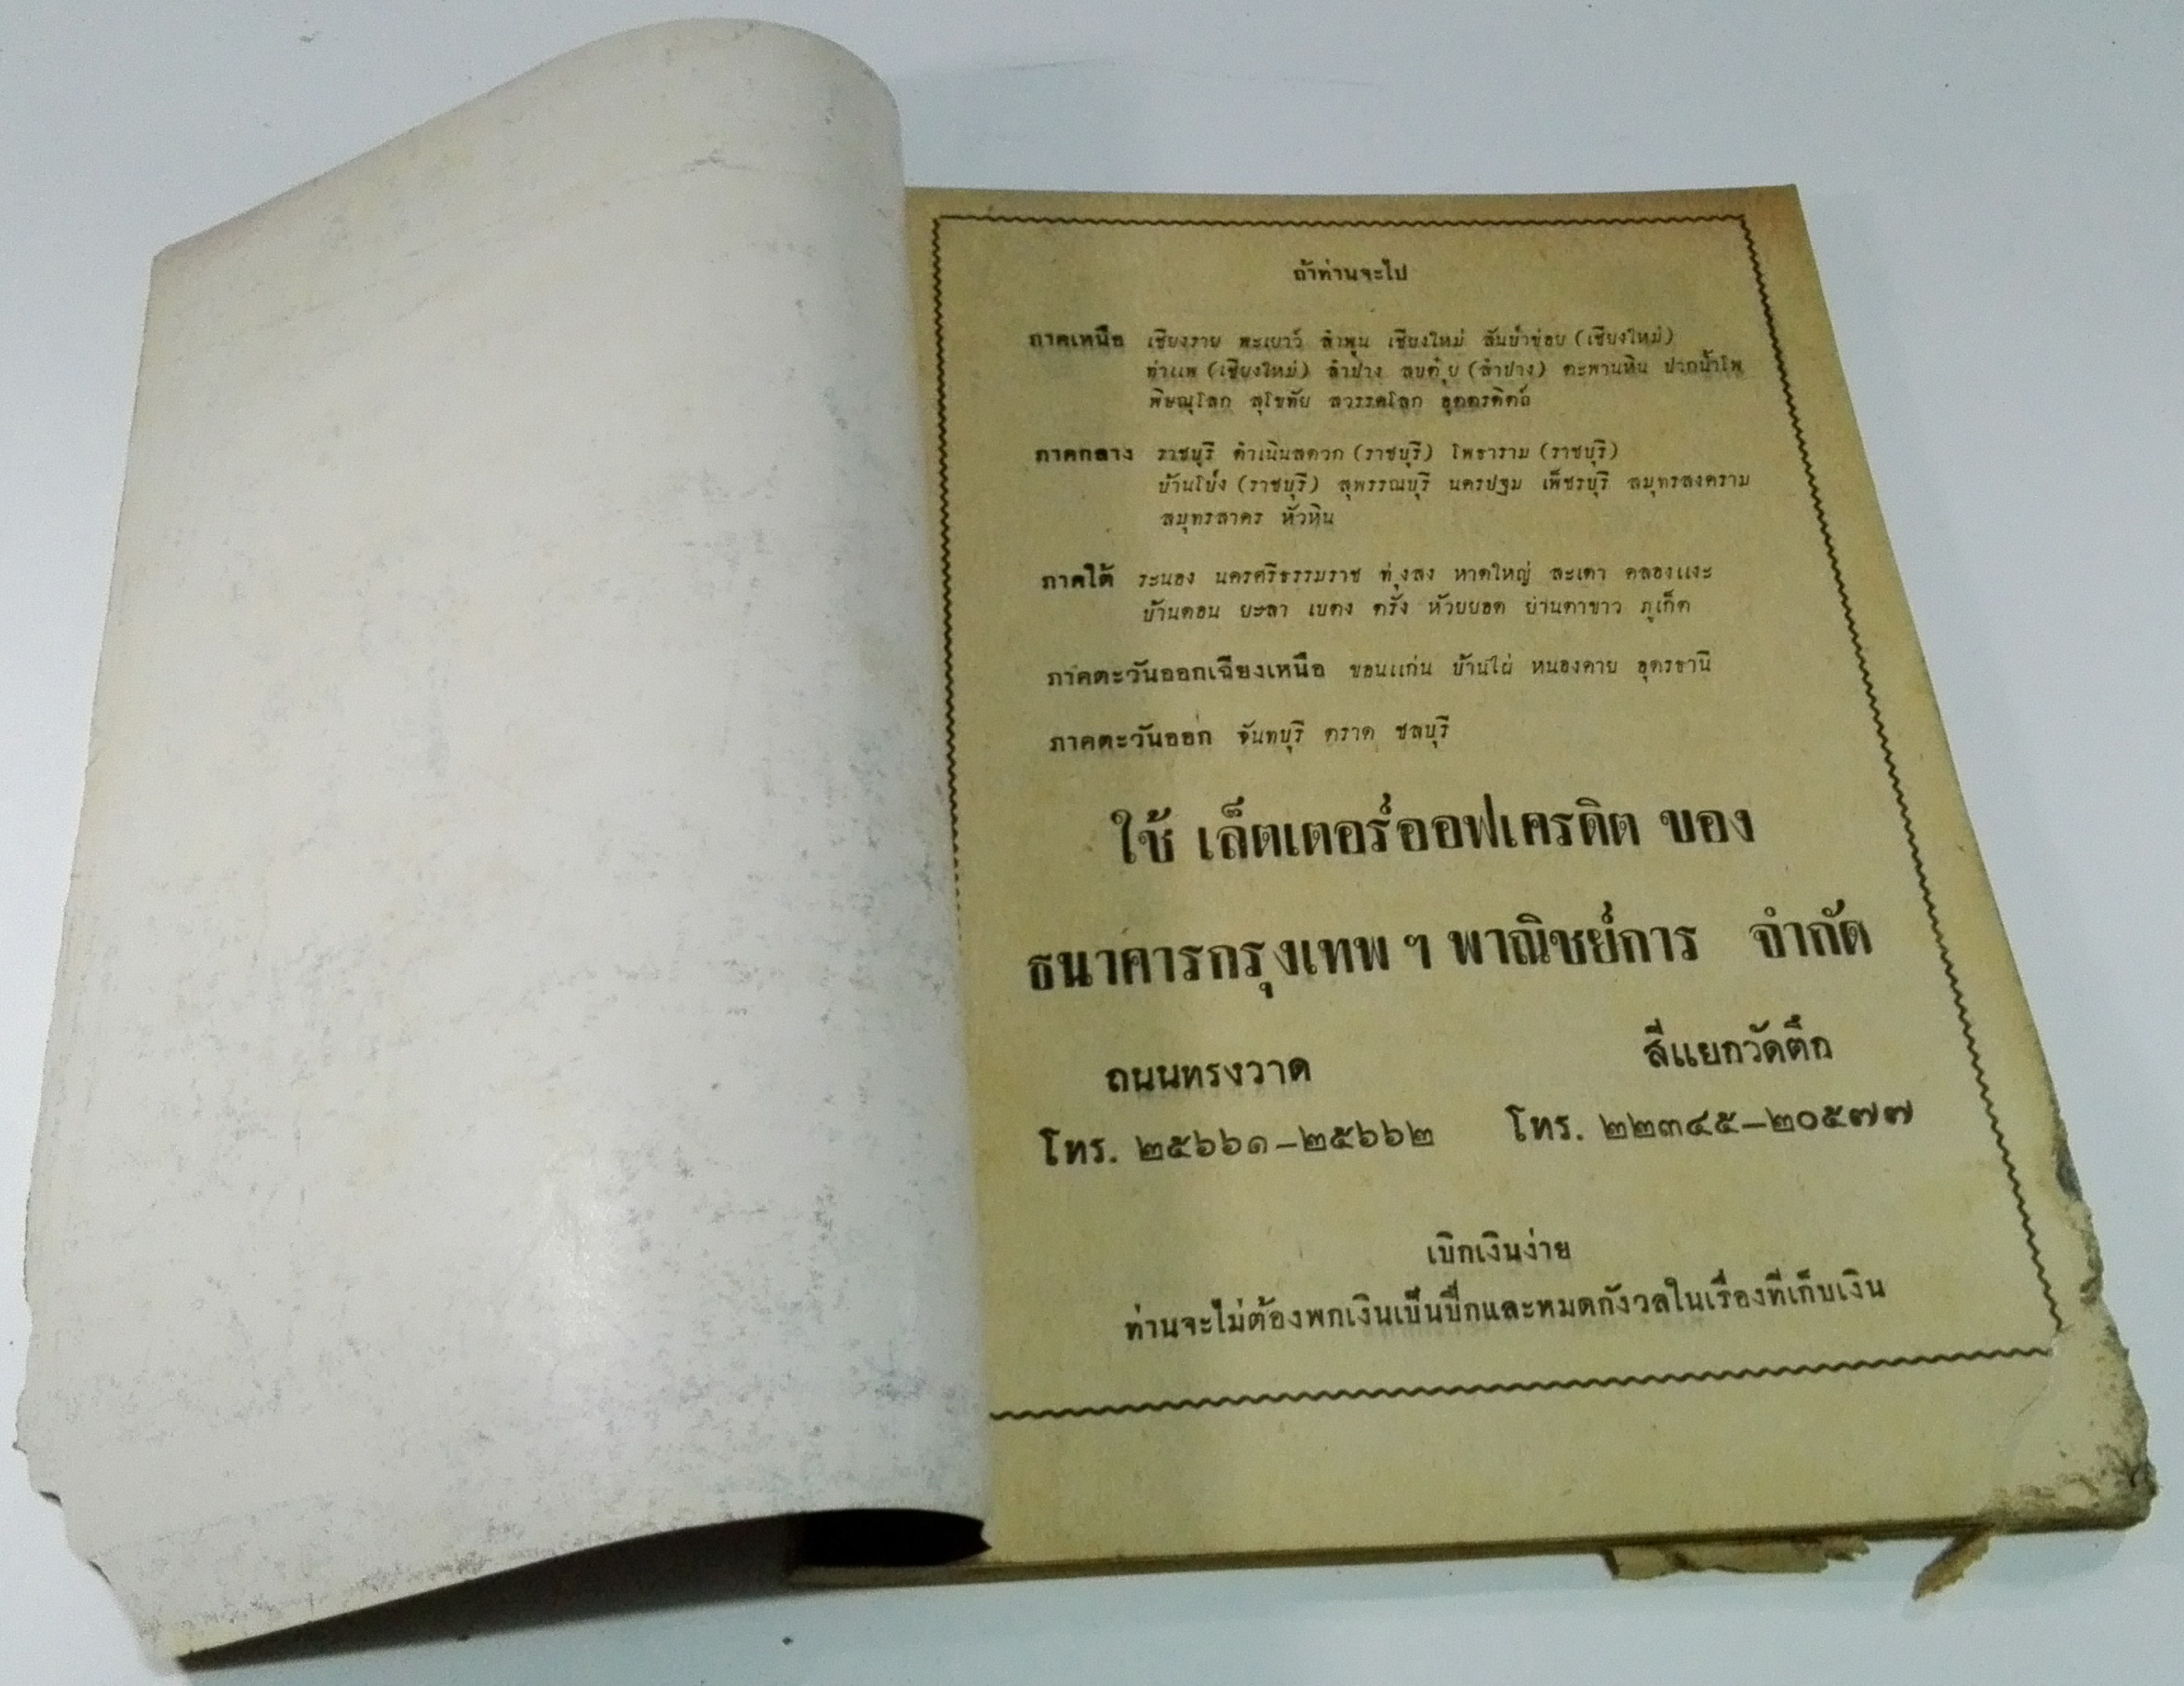 ถ้าท่านจะไป
ภาคเหนือ เชียงราย พะเยาว์ ลำพูน เชียงใหม่ สันป่าข่อย (เชียงใหม่)
ท่าแพ (เชียงใหม่) ลำปาง สบตุ๋ย (ลำปาง) ตะพานหิน ปากน้ำโพ
พิษณุโลก สุโขทัย สวรรคโลก อุตตรดิตถ์
ภาคกลาง ราชบุรี ดำเนินสดวก (ราชบุรี) โพธาราม (ราชบุรี)
บ้านโป่ง (ราชบุรี) สุพรรณบุรี นครปฐม เพ็ชรบุรี สมุทรสงคราม
สมุทรสาคร หัวหิน
ภาคใต้ ระนอง นครศรีธรรมราช ทุ่งสง หาดใหญ่ สะเดา คลองแงะ
บ้านดอน ยะลา เบตง ตรัง ห้วยยอด ย่านตาขาว ภูเก็ต
ภาคตะวันออกเฉียงเหนือ ขอนแก่น บ้านไผ่ หนองคาย อุดรธานี
ภาคตะวันออก จันทบุรี ตราด ชลบุรี
ใช้ เล็ตเตอร์ออฟเครดิต ของ
ธนาคารกรุงเทพ ฯ พาณิชย์การ จำกัด
ถนนทรงวาด สี่แยกวัดตึก
โทร. ๒๕๖๖๑–๒๕๖๖๒ โทร. ๒๒๓๔๕–๒๐๕๗๗
เบิกเงินง่าย
ท่านจะไม่ต้องพกเงินเป็นปึกและหมดกังวลในเรื่องที่เก็บเงิน